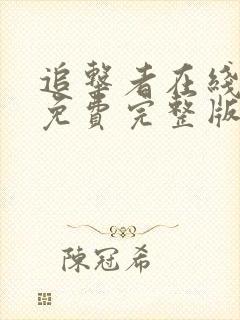 追擊者在綫
免費完整版
陳冠希